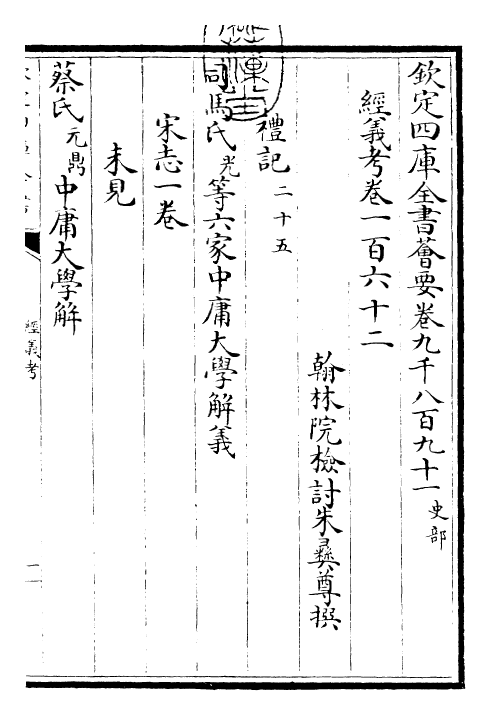 欽定四庫全書薈要卷九千八百九十一 史部
經義考卷一百六十二
翰林院檢討朱彝尊撰
禮記 二十五
司馬氏光等六家中庸大學解義
宋志一卷
未見
蔡氏元鼎中庸大學解
經義考
一